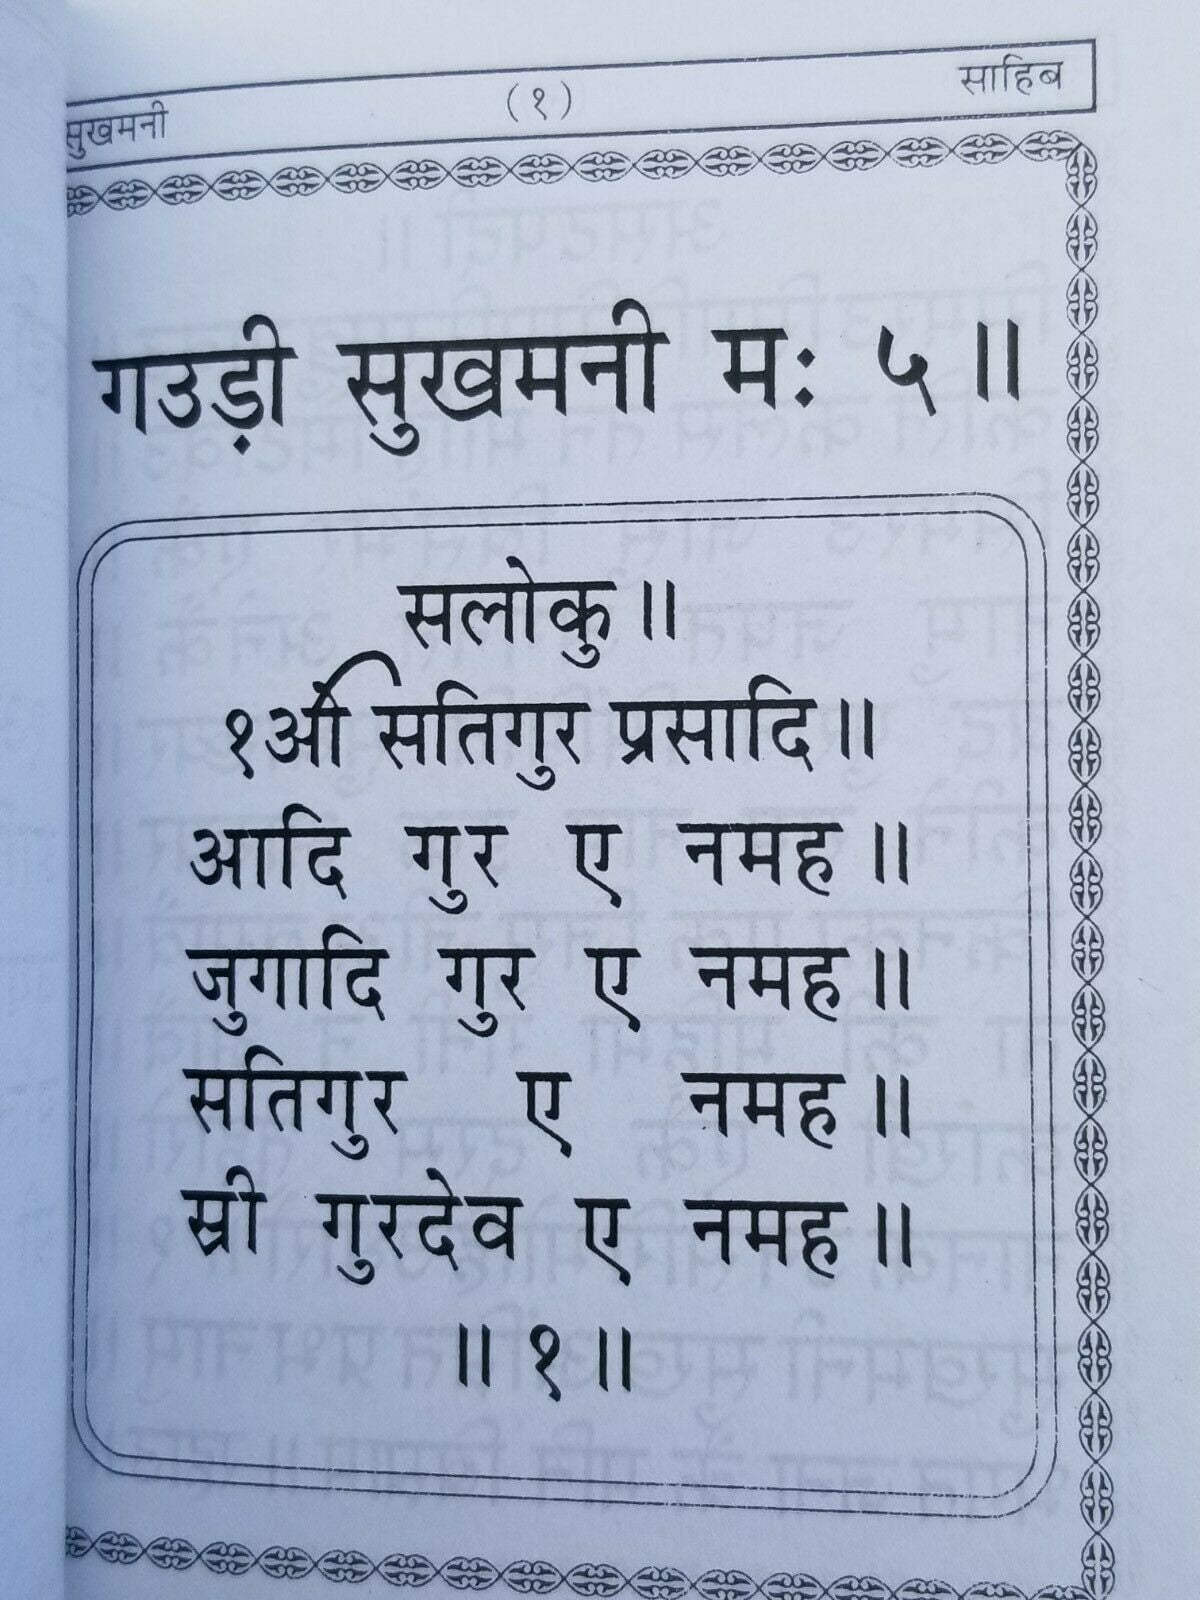 सुखमनी (१) साहिब
गउड़ी सुखमनी मः ५॥
सलोकु॥
१ओੴ सतिगुर प्रसादि॥
आदि गुर ए नमह॥
जुगादि गुर ए नमह॥
सतिगुर ए नमह॥
स्री गुरदेव ए नमह॥
॥१॥